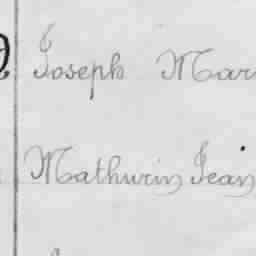 Joseph Mar
Mathurin Jean